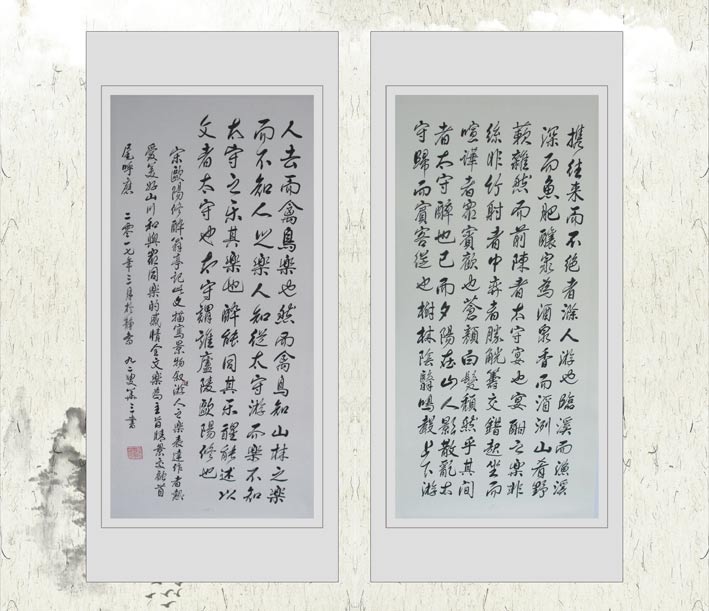 携往来而不绝者滁人游也臨溪而漁溪
深而魚肥釀泉為酒泉香而酒洌山肴野
蔌雜然而前陳者太守宴也宴酣之樂非
絲非竹射者中弈者勝觥籌交錯起坐而
喧譁者衆賓歡也蒼顏白髮頹然乎其間
者太守醉也已而夕陽在山人影散亂太
守歸而賓客從也樹林陰翳鳴聲上下游
人去而禽鳥樂也然而禽鳥知山林之樂
而不知人之樂人知從太守游而樂不知
太守之乐其樂也醉能同其乐醒能述以
文者太守也太守謂誰廬陵歐陽修也
宋歐陽修醉翁亭記此文描寫景物叙游人之樂表達作者熱
愛美好山川和與衆同樂的感情全文樂為主旨勝景文韵首
尾呼應 二零一七年三月於靜斋 九二叟 書